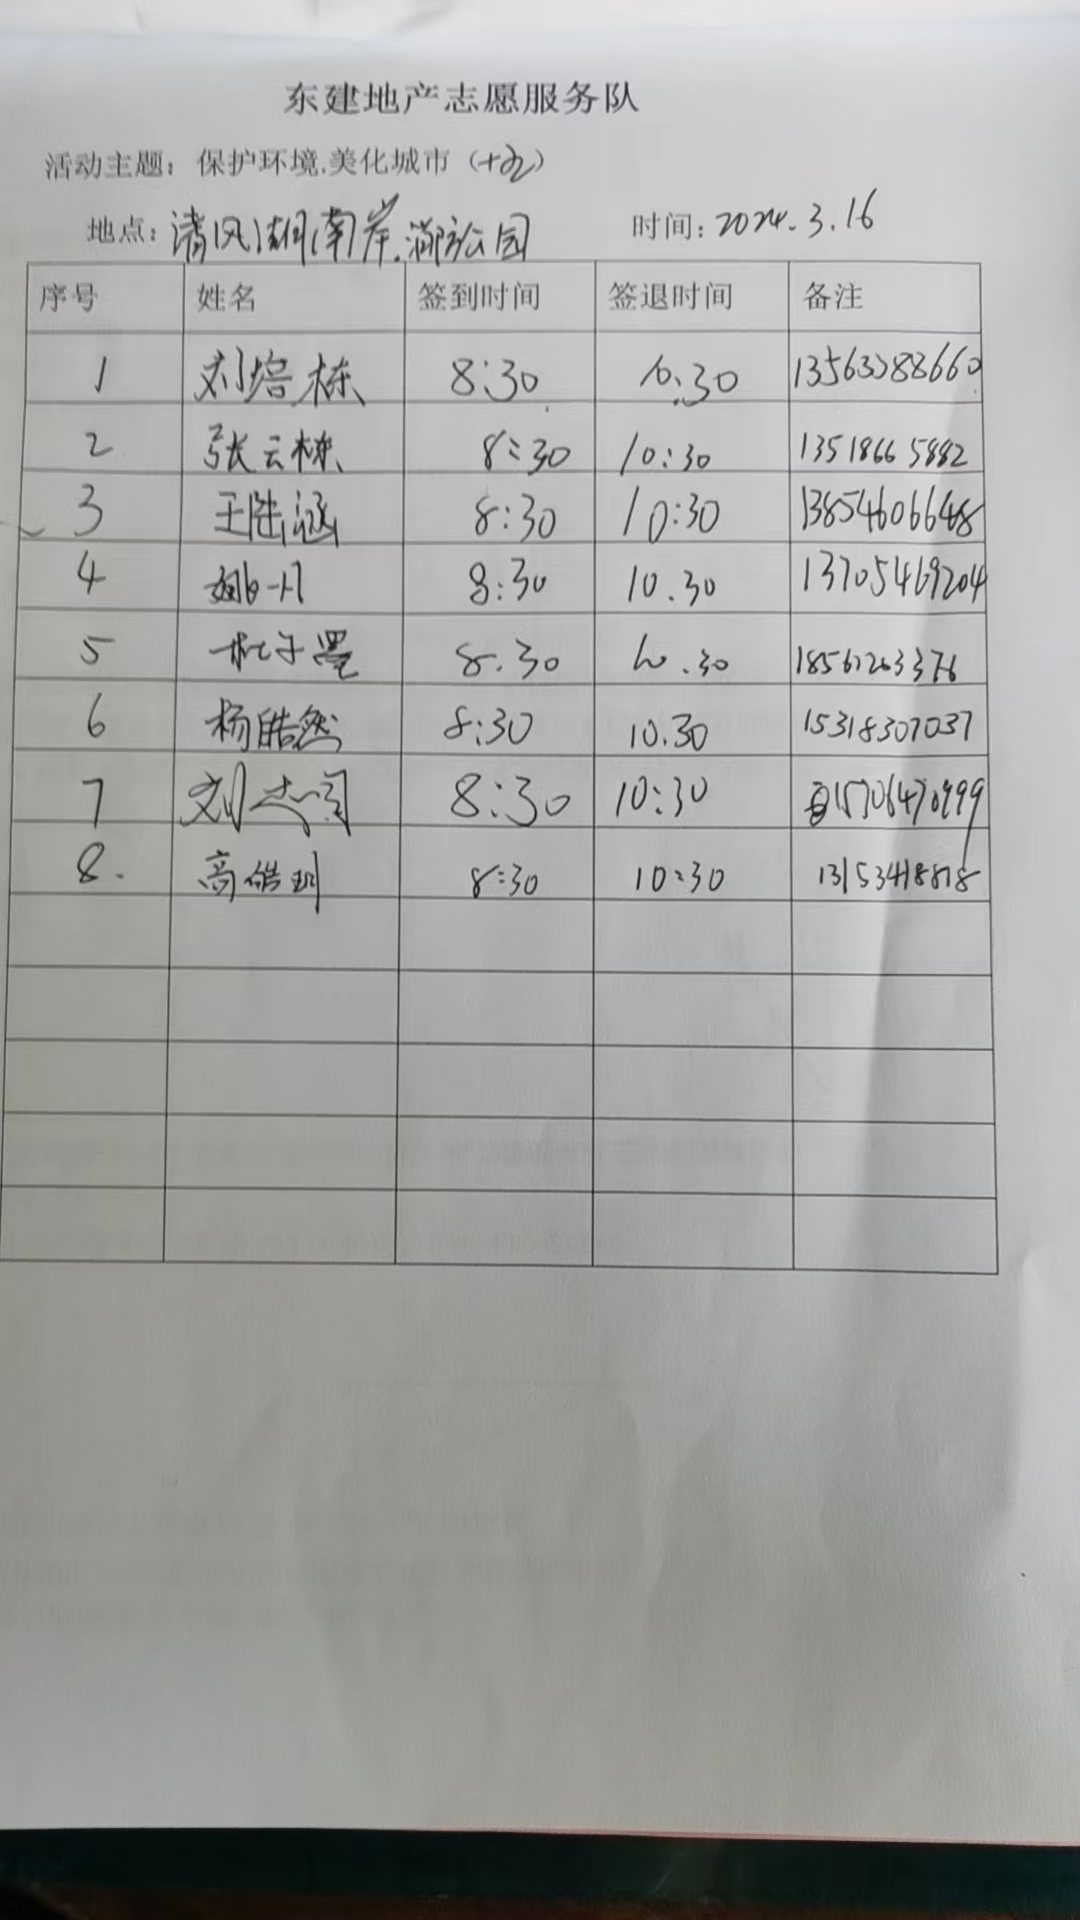 东建地产志愿服务队
活动主题：保护环境.美化城市（十九）
地点：清风湖南岸. 公园 时间：2024.3.16
序号 姓名 签到时间 签退时间 备注
1 刘培栋 8:30 10:30
2 张云栋 8:30 10:30 13518665882
3 王陆涵 8:30 10:30 13854606648
4 姚一凡 8:30 10.30 13705469204
5 杜子墨 8.30 10.30 18561263376
6 杨皓然 8:30 10.30 15318307037
7 刘志 8:30 10:30
8. 高皓玥 8:30 10:30 13153418818